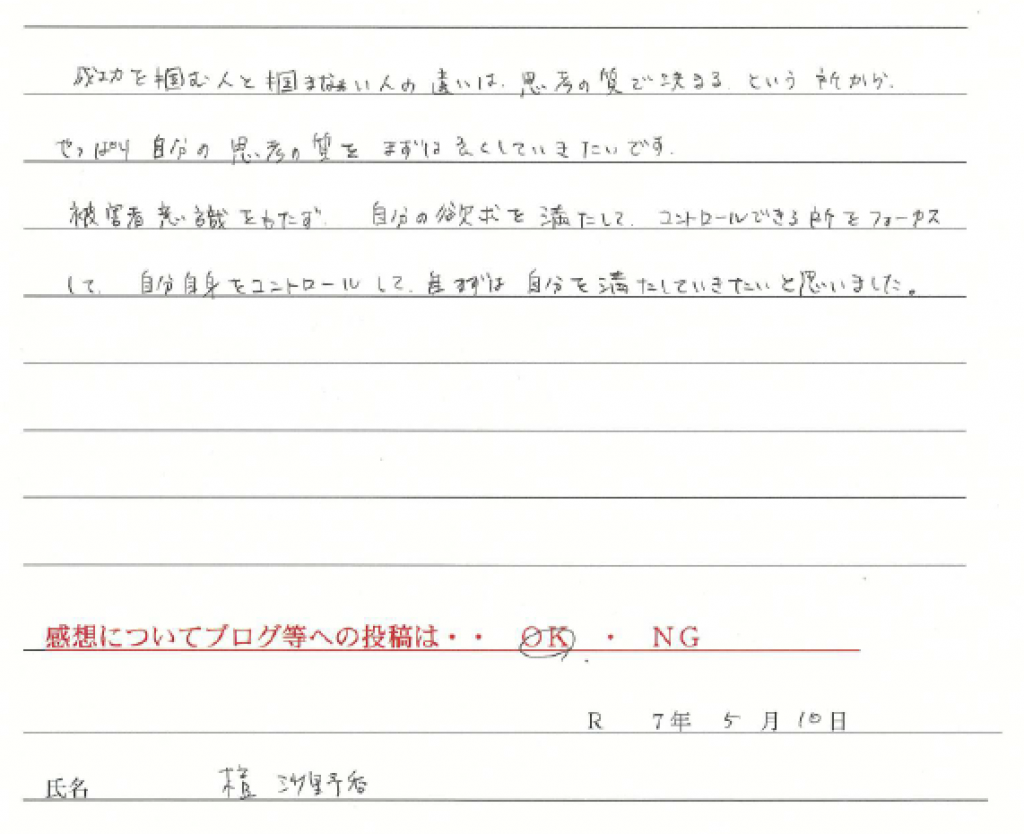 成功を掴む人と掴まない人の違いは、思考の質で決まる、という所から、
やっぱり自分の思考の質をまずは良くしていきたいです。
被害者意識をもたず、自分の欲求を満たして、コントロールできる所をフォーカス
して、自分自身をコントロールして、まずは自分を満たしていきたいと思いました。
感想についてブログ等への投稿は・・ OK ・ NG
R 7年 5月 10日
氏名 沙里香